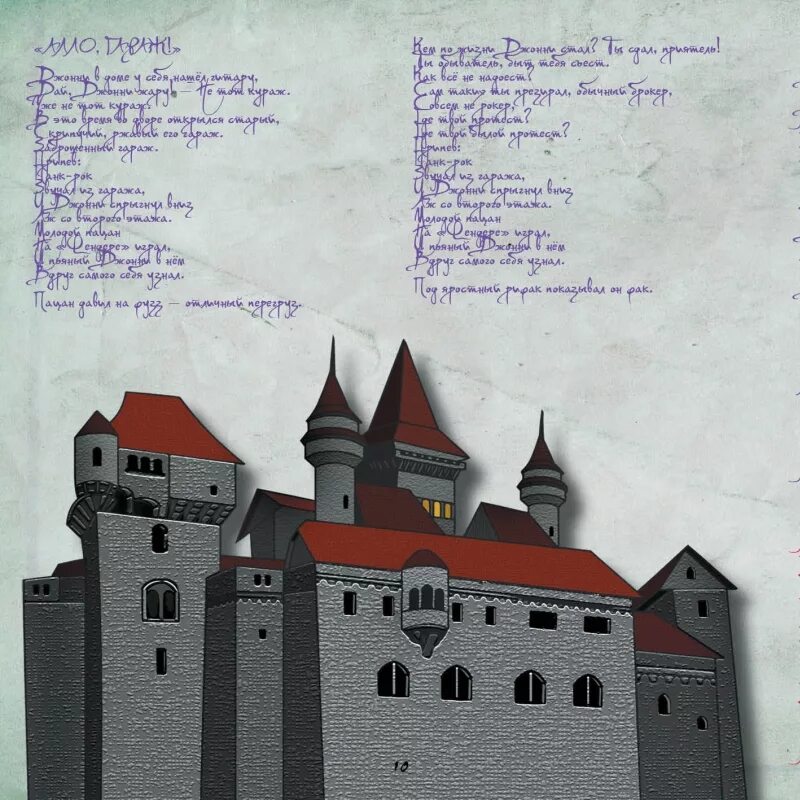 «АЛЛО, ГАРАЖ!»
Джонни в доме у себя нашёл гитару,
Дай, Джонни жару! — Не тот кураж.
Уже не тот кураж.
В это время во дворе открылся старый,
Скрипучий, ржавый его гараж.
Заброшенный гараж.
Припев:
Панк-рок
Звучал из гаража,
И Джонни спрыгнул вниз
Аж со второго этажа.
Молодой пацан
На «Фендере» играл,
И пьяный Джонни в нём
Вдруг самого себя узнал.
Пацан давил на фузз — отличный перегруз.
Кем по жизни Джонни стал? Ты сдал, приятель!
Ты обыватель, быт тебя съест.
Как всё не надоест?
Сам таких ты презирал, обычный брокер,
Совсем не рокер,
Где твой протест?
Где твой былой протест?
Припев:
Панк-рок
Звучал из гаража,
И Джонни спрыгнул вниз
Аж со второго этажа.
Молодой пацан
На «Фендере» играл,
И пьяный Джонни в нём
Вдруг самого себя узнал.
Под яростный рифак показывал он фак.
10